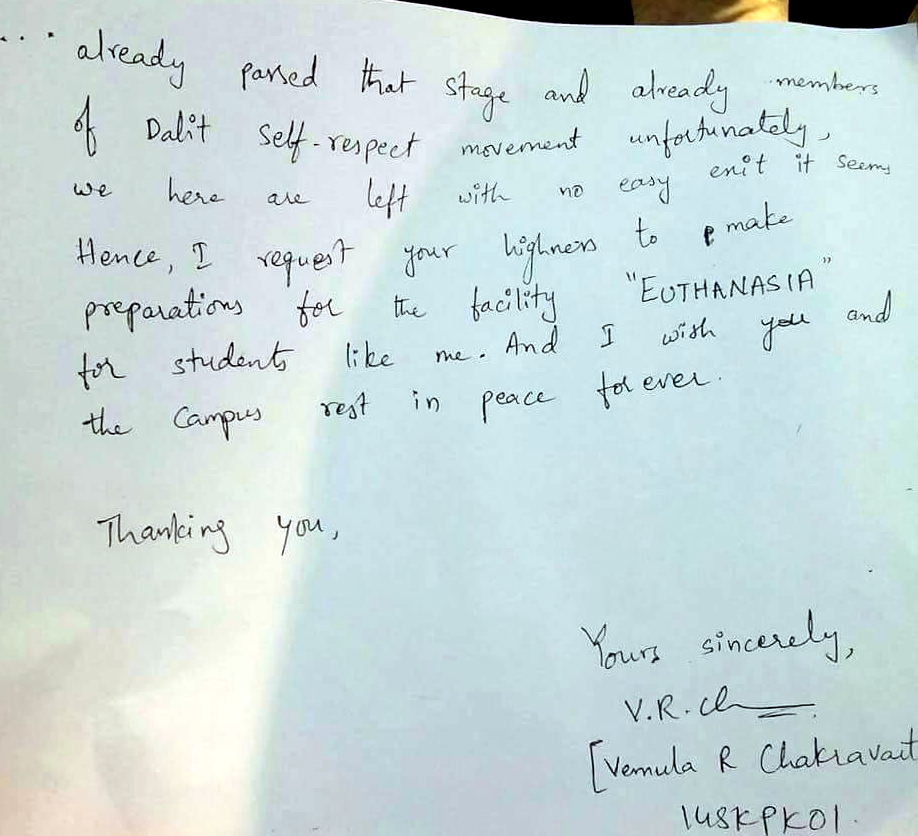 ... already passed that stage and already members
of Dalit Self-respect movement unfortunately,
we here are left with no easy exit it seems
Hence, I request your highness to make
preparations for the facility "EUTHANASIA"
for students like me. And I wish you and
the Campus rest in peace forever.
Thanking you,
Yours sincerely,
V.R.Ch
[Vemula R Chakravart
14SKPK01.